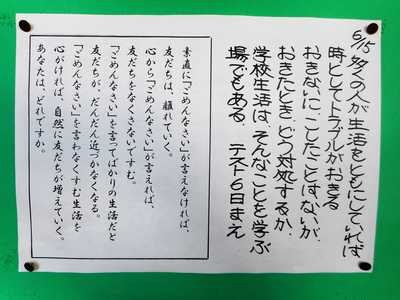 6/15 多くの人が生活をともにしていれば
時としてトラブルがおきる
おきないにこしたことはないが、
おきたとき、どう対処するか、
学校生活は、そんなことを学ぶ
場でもある。 テスト6日まえ
素直に「ごめんなさい」が言えなければ、
友だちは、離れていく。
心から「ごめんなさい」が言えれば、
友だちをなくさないですむ。
「ごめんなさい」を言ってばかりの生活だと
友だちが、だんだん近づかなくなる。
「ごめんなさい」を言わなくすむ生活を
心がければ、自然に友だちが増えていく。
あなたは、どれですか。